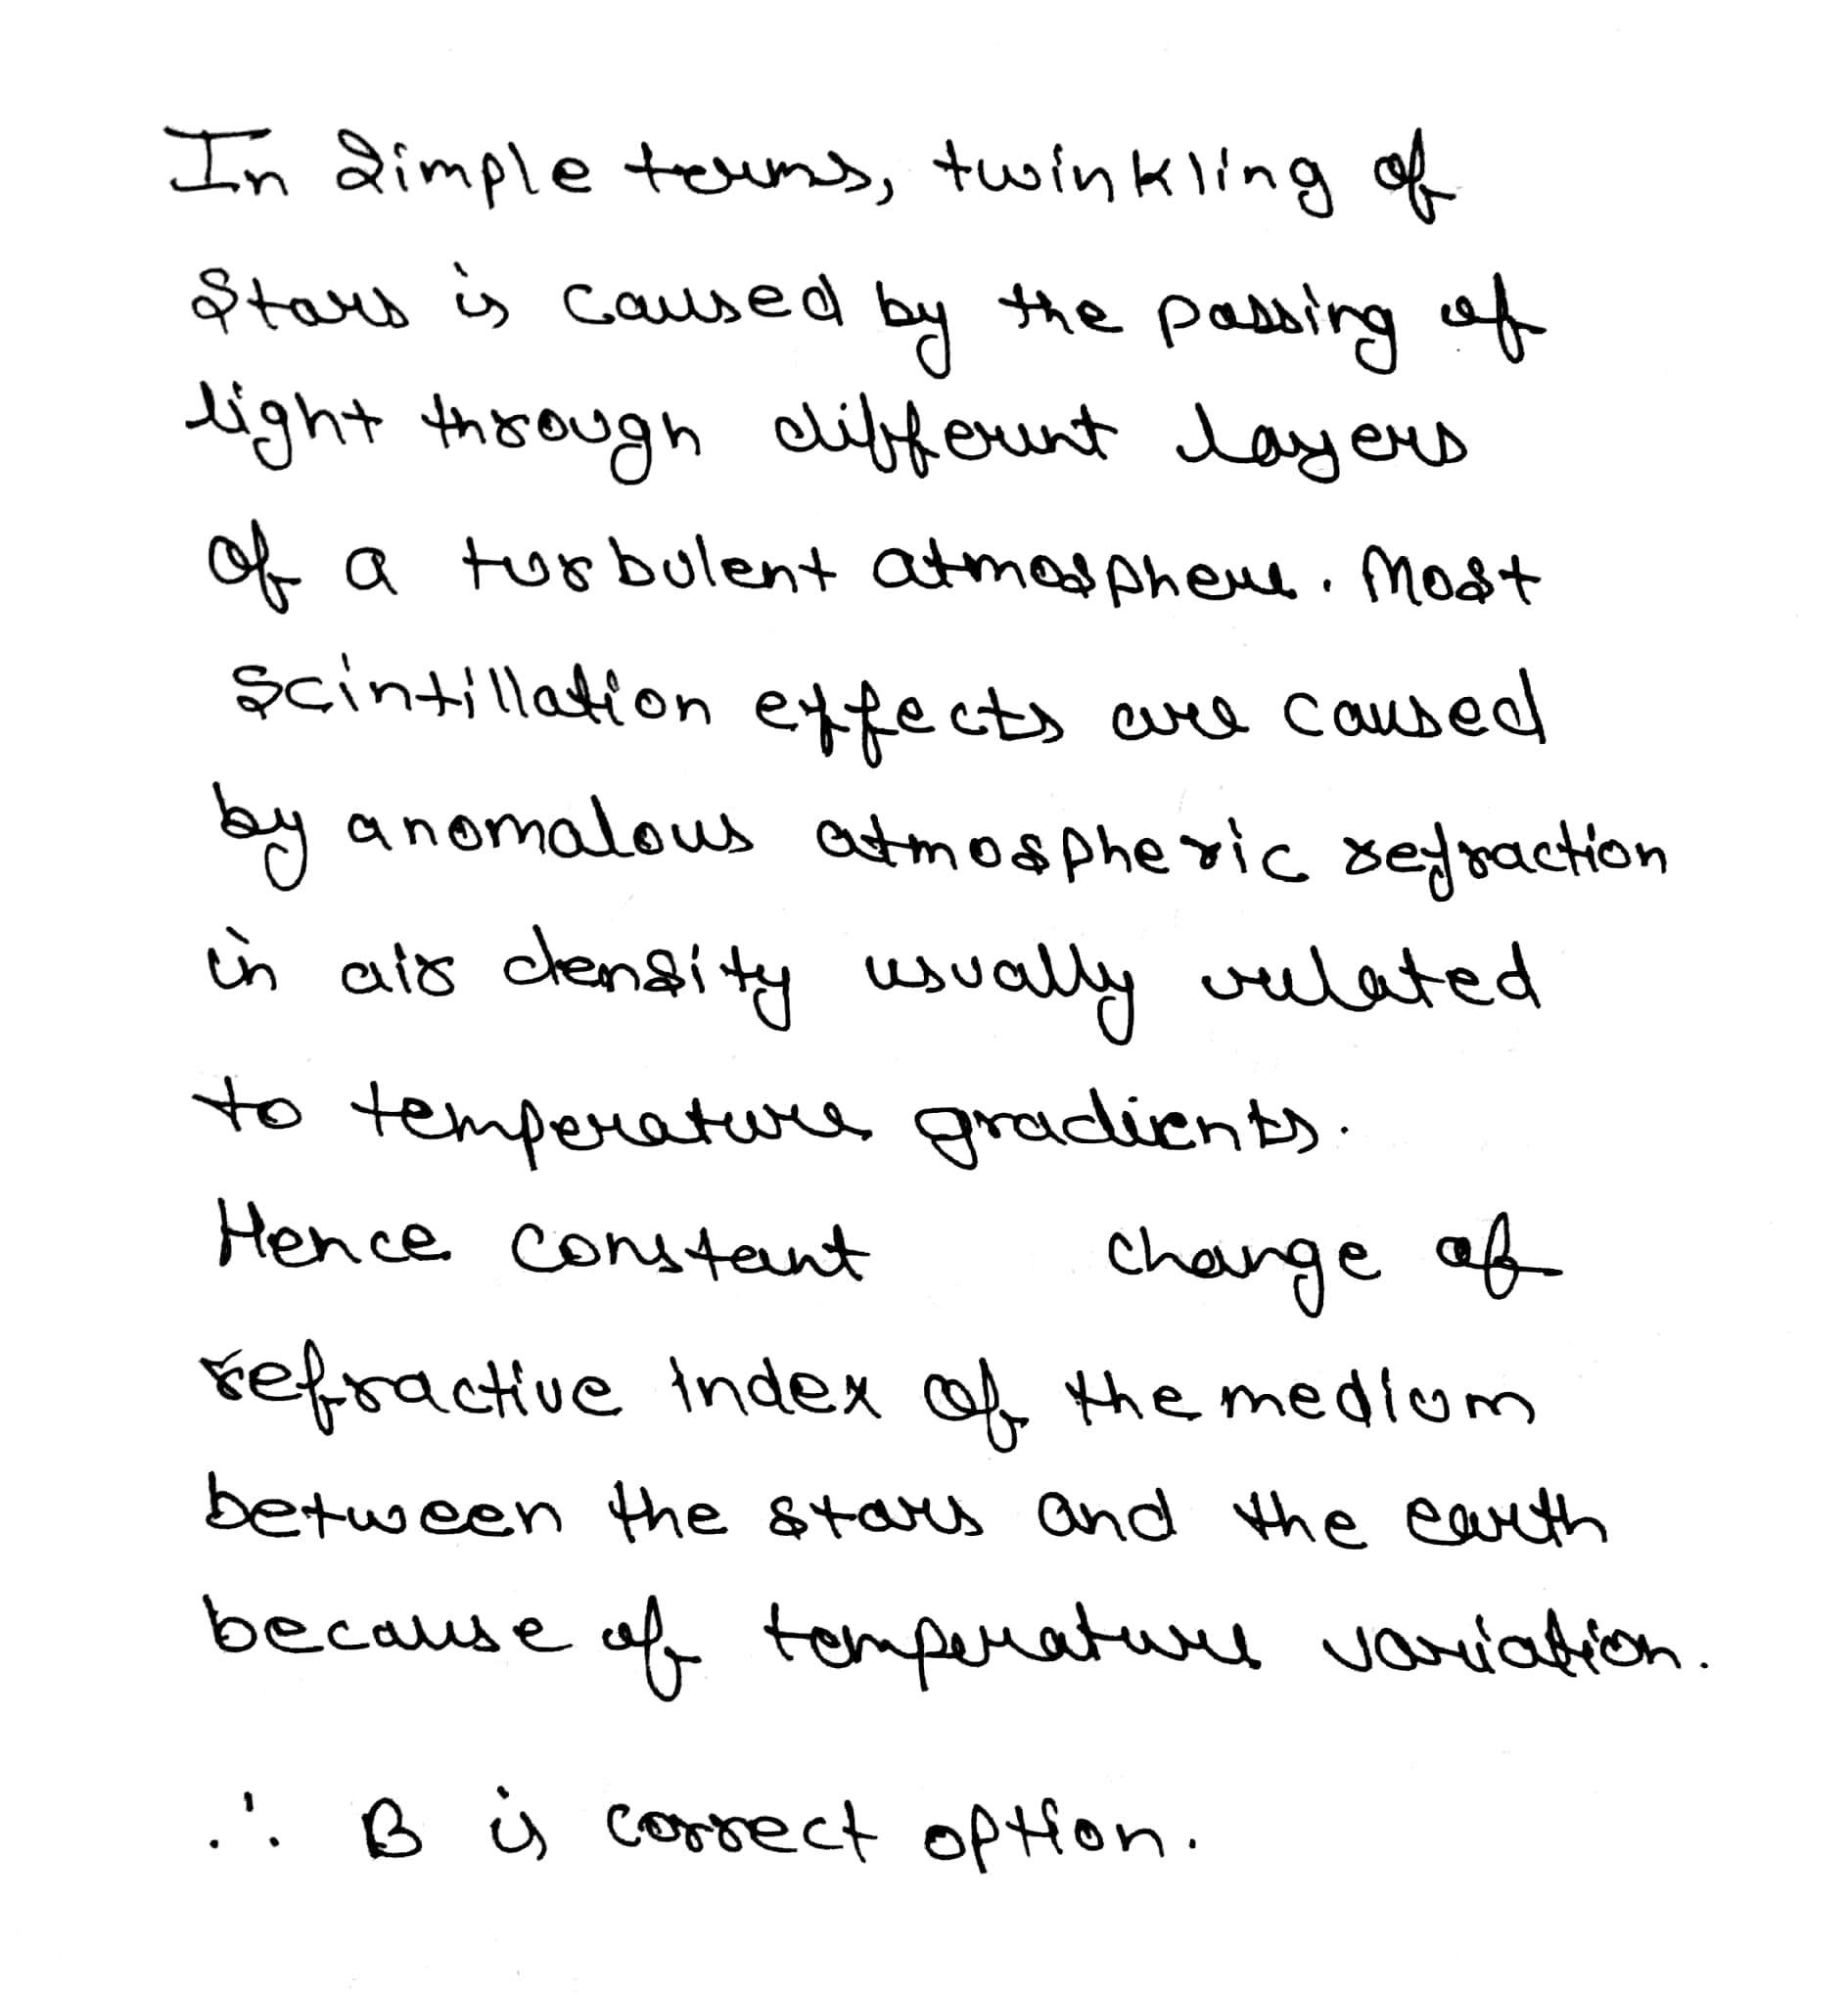 In simple terms, twinkling of
Stars is caused by the passing of
light through different layers
of a turbulent atmosphere. Most
scintillation effects are caused
by anomalous atmospheric refraction
in air density usually related
to temperature gradients.
Hence constant change of
refractive index of the medium
between the stars and the earth
because of temperature variation.
∴ B is correct option.